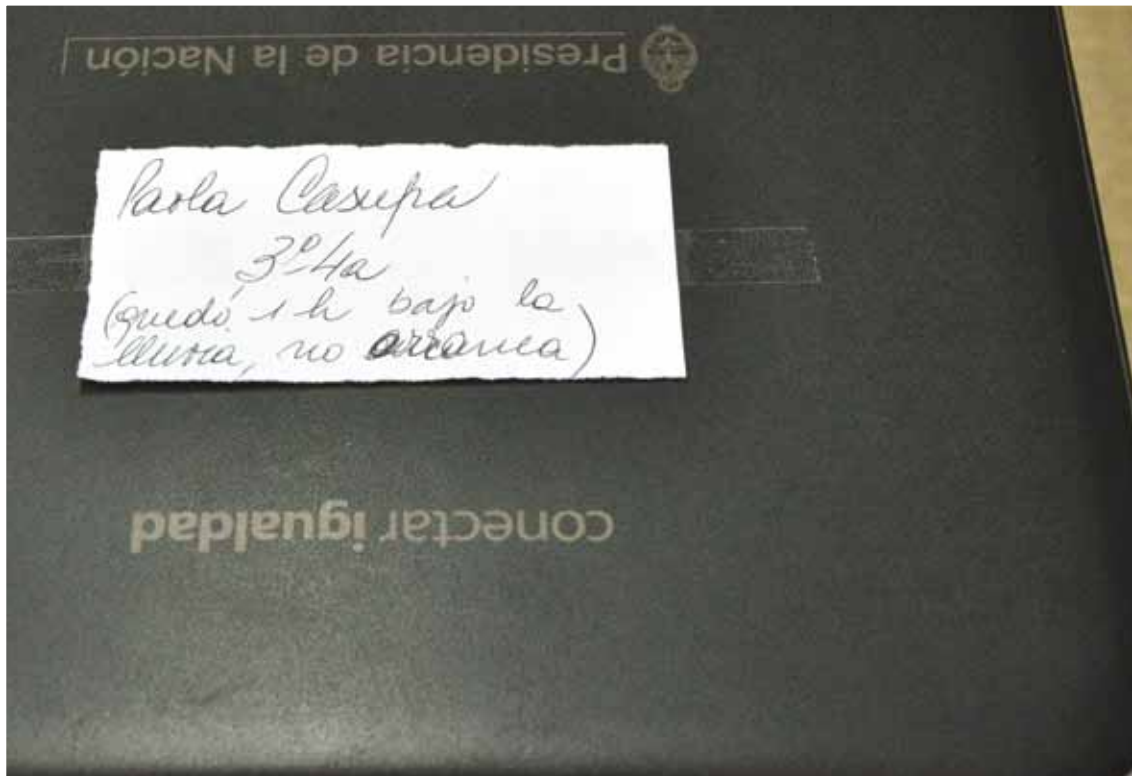 Presidencia de la Nación
Paola Casupa
3º 4a
(quedó 1 h bajo la
lluvia, no arranca)
conectar igualdad